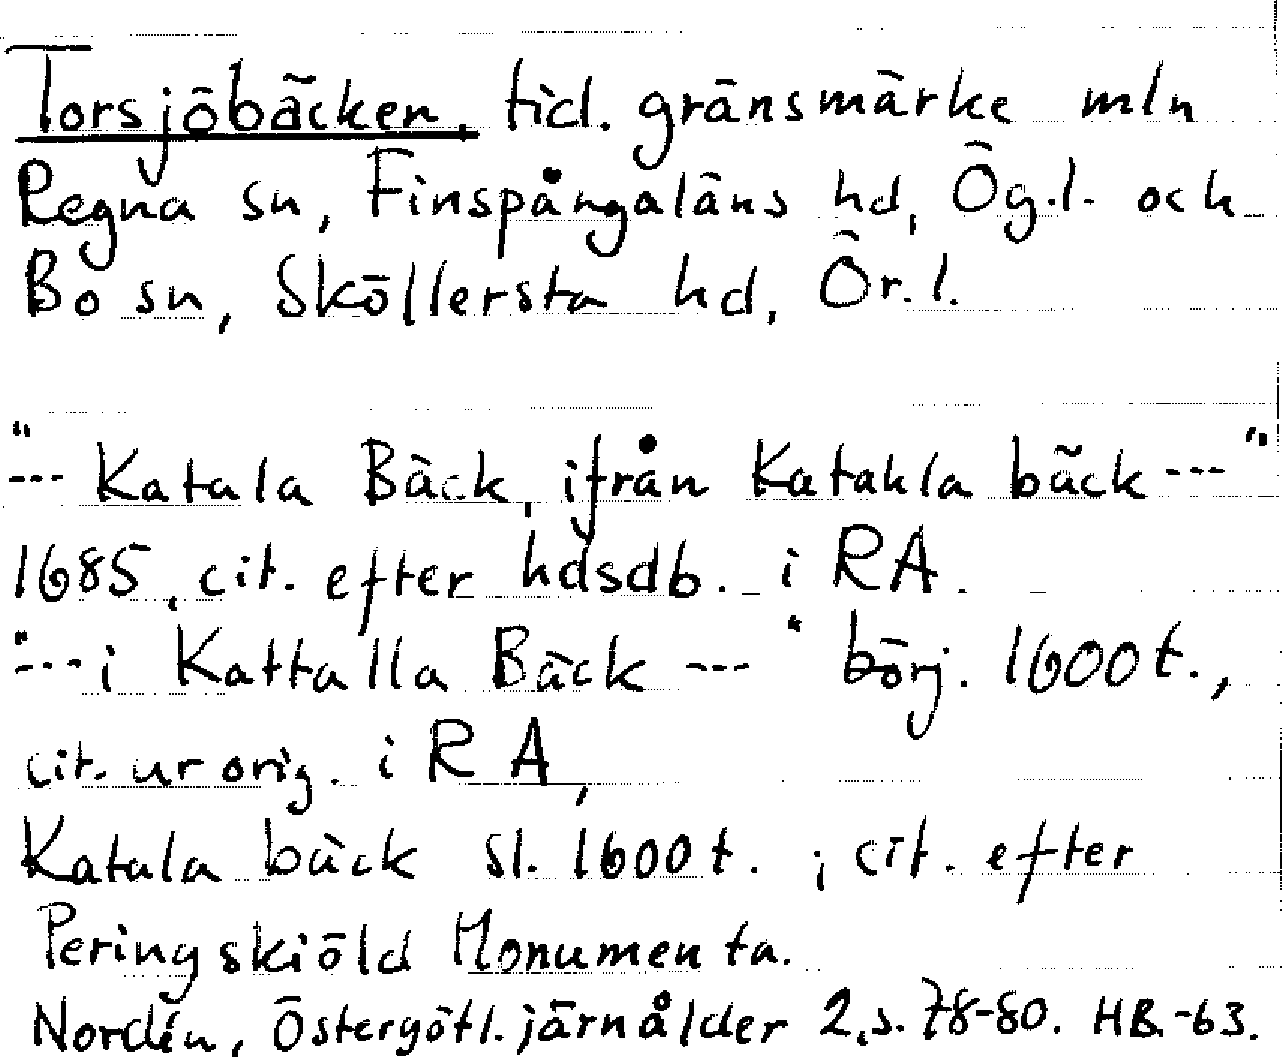 Torsjöbäcken, tid. gränsmärke mln
Regna sn, Finspångaläns hd, Ög.l. och
Bo sn, Sköllersta hd, Ör.l.
"--- Katala Bäck, ifrån Katahla bäck ---"
1685, cit. efter hdsdb. i RA.
"--- i Kattalla Bäck --- " börj. 1600t.,
cit. ur orig. i RA,
Katala bäck sl. 1600t. ; cit. efter
Peringskiöld Monumenta.
Nordén, Östergötl. järnålder 2, s. 78-80. HB-63.